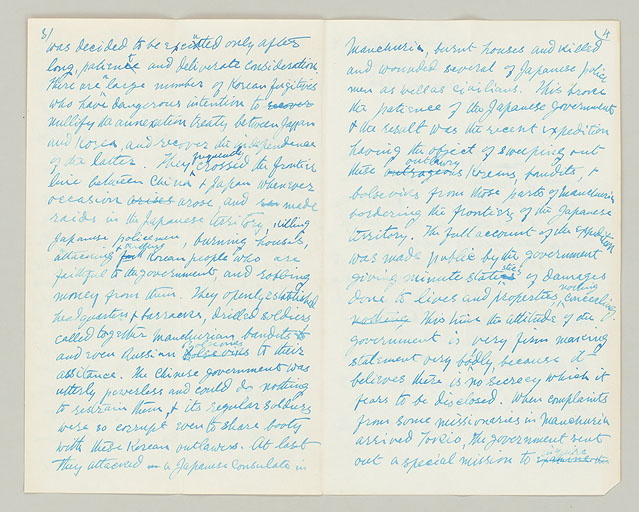 3/
was decided to be executed only after
long, patience and deliberate consideration
there are a large number of Korean fugitives
who have dangerous intention to recover
nullify the annexation treaty between Japan
and Korea, and recover the independence
of the latter. They frequently crossed the frontier
line between China & Japan whenever
occasion arises arose, and made
raids in the Japanese territory, killing
Japanese policemen, burning houses,
attacking Korean people who are
faithful to the government, and robbing
money from them. They openly established
headquarters & barracks, drilled soldiers
called together Manchurian bandits
and even Russian Bolsevikis to their
assistance. The Chinese government was
utterly powerless and could do nothing
to restrain them, & its regular soldiers
were so corrupt even to share booty
with these Korean outlaws. At last
they attacked a Japanese Consulate in
4
Manchuria, burnt houses and killed
and wounded several of Japanese police
men as well as civilians. This broke
the patience of the Japanese government
& the result was the recent expedition
having the object of sweeping out
these outrageous outlawry Koreans, bandits, &
bolseviks from those parts of Manchuria
bordering the frontiers of the Japanese
territory. The full account of the expedition
was made public by the government
giving minute of damages
done to lives and properties, nothing concealing
nothing. This time the attitude of the
government is very firm making
statement very boldly, because it
believes there is no secrecy which it
fears to be disclosed. When complaints
from some missionaries in Manchuria
arrived Tokio, the government sent
out a special mission to